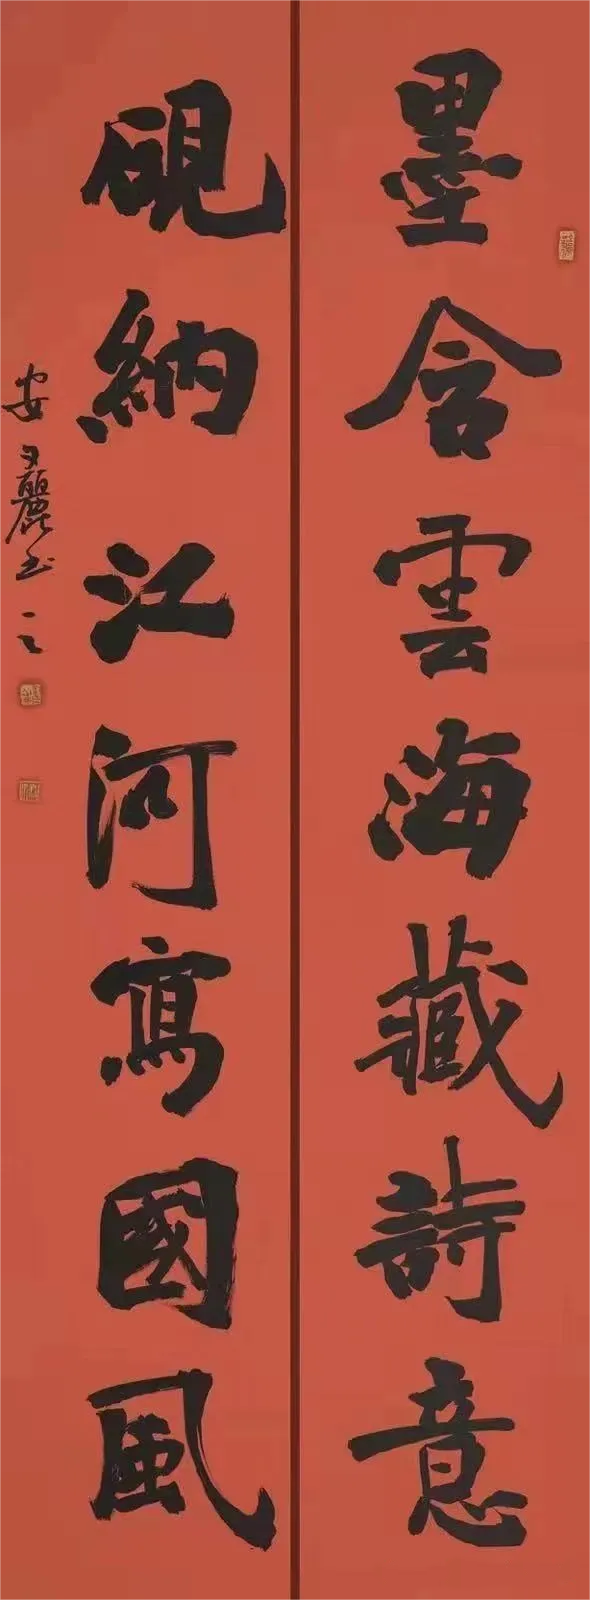 墨含雲海藏詩意
硯納江河寫國風
安文麗書